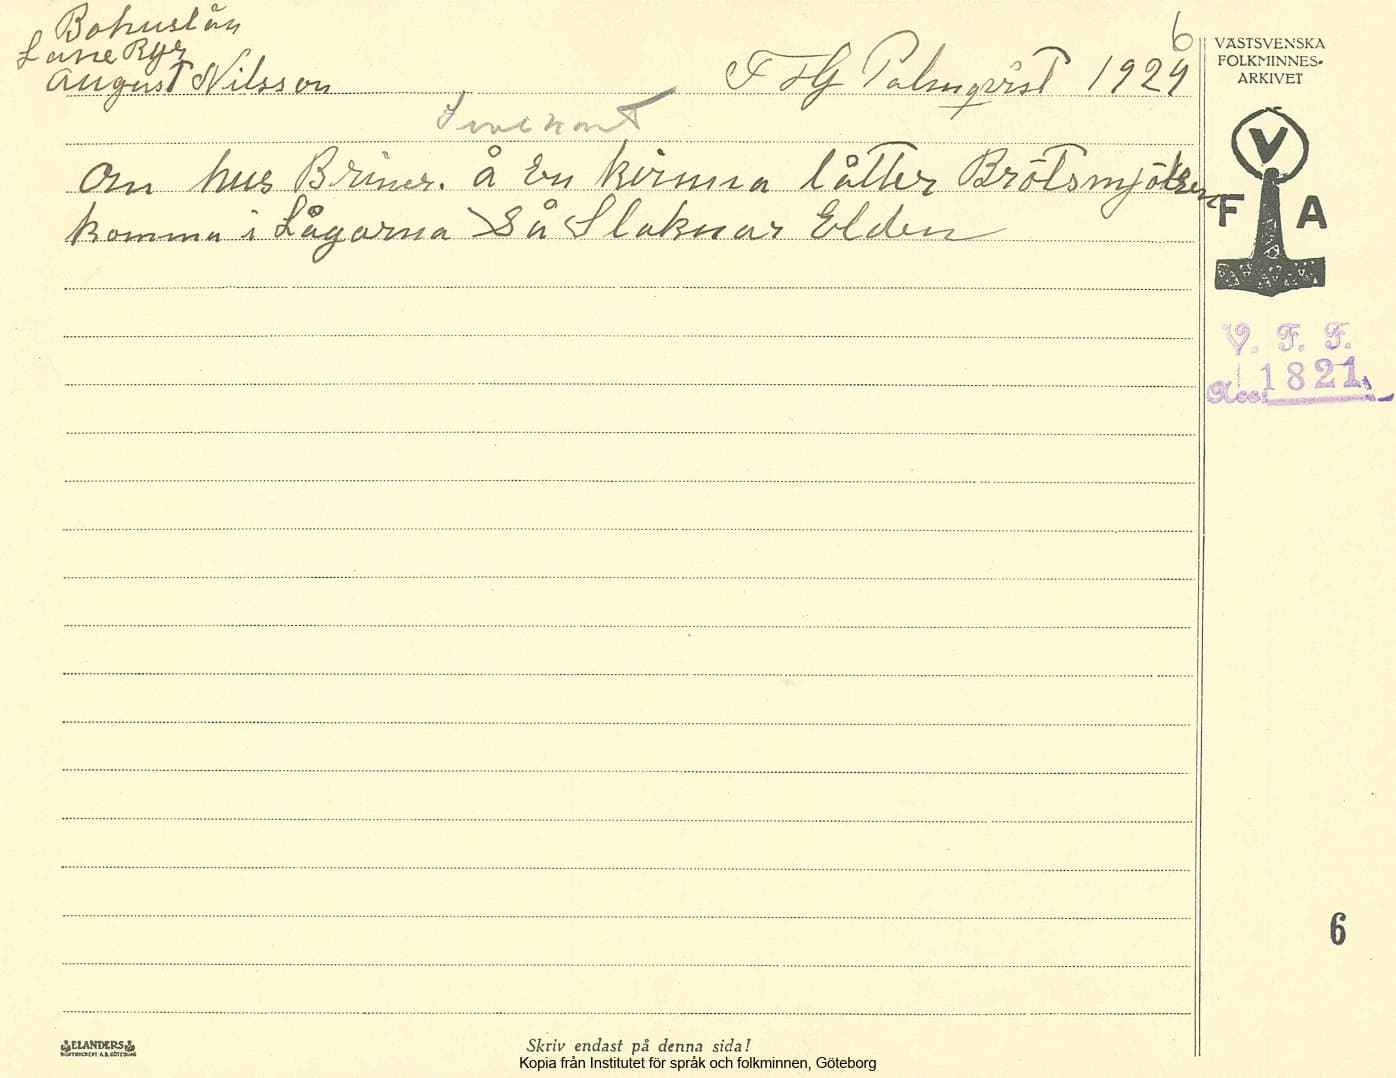 Bohuslän
Lane Ryr
August Nilsson
F HG Palmqvist 1924
6
VÄSTSVENSKA
FOLKMINNES-
ARKIVET
om hus Briner. å En kvinna låtter Brötsmjölken
komma i Lågarna Så Slaknar Elden
V
F A
V. F. F.
Acc. 1821
6
ELANDERS
Skriv endast på denna sida!
Kopia från Institutet för språk och folkminnen, Göteborg